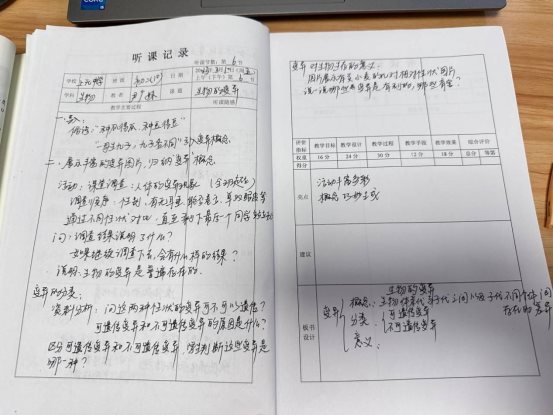 听课记录
听课节数：第 6 节
学校 班级 初二(1) 日期
上午（下午）第 节
学科 生物 教者 课题 生物的变异
教学主要过程 听课随感
一、
俗语：“种瓜得瓜，种豆得豆”
“一母生九子，九子各不同” 引入变异概念
二、展示丰富的变异图片，归纳“变异”概念
活动：课堂调查：人体的变异现象
调查顺序：性别、有无耳垂、能否卷舌、单双眼皮等
通过不同性状对比，直至剩下最后一个同学
问：调查结果说明了什么？
如果继续调查下去，会有什么样的结果？
说明：生物的变异是普遍存在的。
变异的分类：
资料分析：问这两种性状的变异可不可以遗传？
可遗传变异和不可遗传变异的原因是什么？
区分可遗传变异和不可遗传变异，判断这些变异是
哪一种？
变异对生物生存的意义：
图片展示有关小麦的几对相对性状图片
说一说哪些变异是有利的，哪些有害？
评价指标 教学目标 教学设计 教学过程 教学手段 教学效果 综合评价
权重 16分 24分 30分 12分 18分 总分 等第
得分
亮点
活动丰富多彩
概念巧妙生成
建议
板书设计
生物的变异
变异
概念：生物体亲代与子代之间以及子代不同个体间存在的差异
分类 可遗传变异
不可遗传变异
意义：